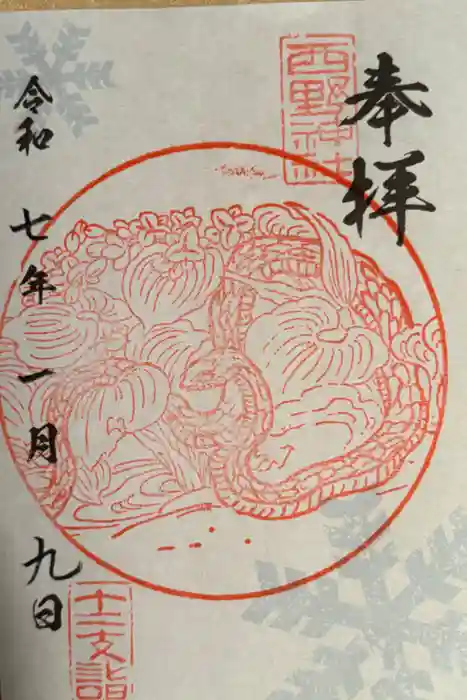 奉拝
西野神社
令和七年一月九日
十二支詣